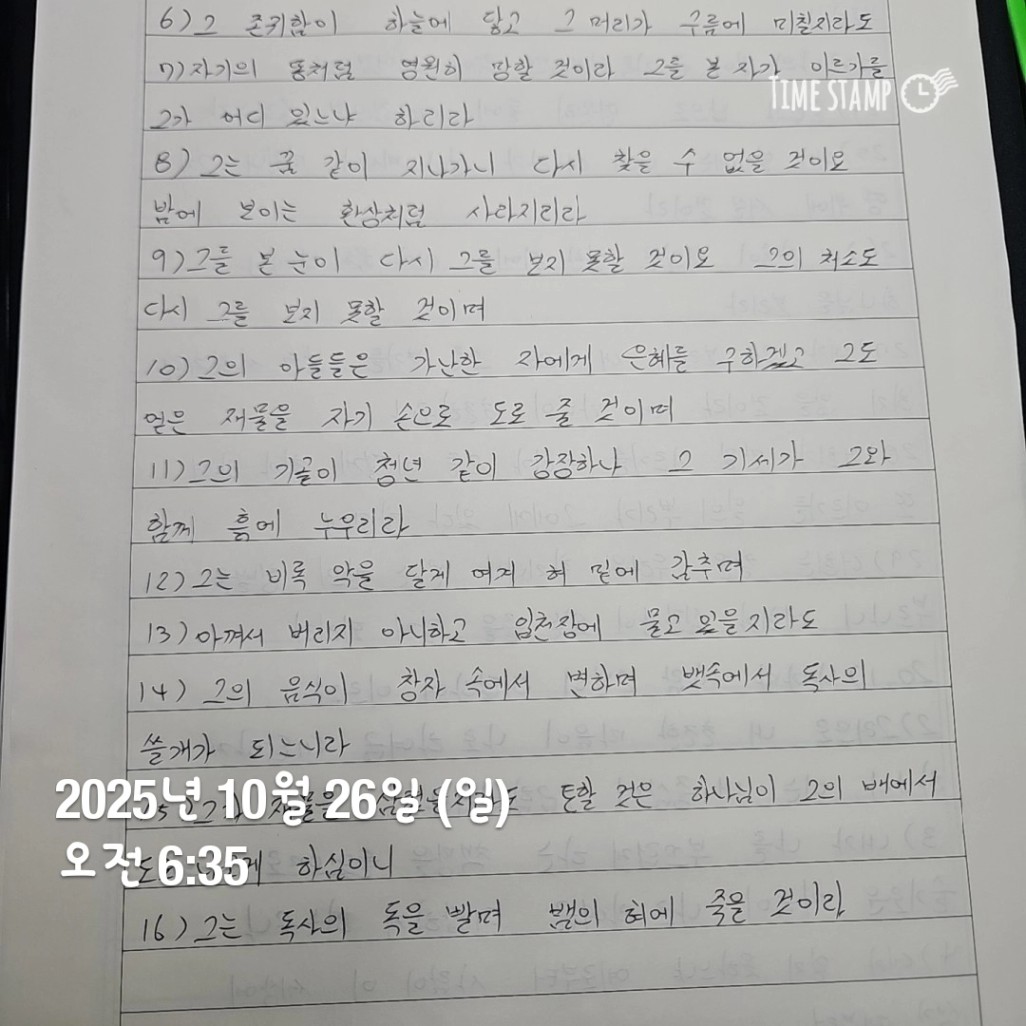 6) 그 존귀함이 하늘에 닿고 그 머리가 구름에 미칠지라도
7) 자기의 똥처럼 영원히 망할 것이라 그를 본 자가 이르기를
그가 어디 있느냐 하리라
8) 그는 꿈 같이 지나가니 다시 찾을 수 없을 것이요
밤에 보이는 환상처럼 사라지리라
9) 그를 본 눈이 다시 그를 보지 못할 것이요 그의 처소도
다시 그를 보지 못할 것이며
10) 그의 아들들은 가난한 자에게 은혜를 구하겠고 그도
얻은 재물을 자기 손으로 도로 줄 것이며
11) 그의 기골이 청년 같이 강장하나 그 기세가 그와
함께 흙에 누우리라
12) 그는 비록 악을 달게 여겨 혀 밑에 감추며
13) 아껴서 버리지 아니하고 입천장에 물고 있을지라도
14) 그의 음식이 창자 속에서 변하며 뱃속에서 독사의
쓸개가 되느니라
재물을 토할 것은 하나님이 그의 배에서
하심이니
16) 그는 독사의 독을 빨며 뱀의 혀에 죽을 것이라
TIME STAMP
2025년 10월 26일 (일)
오전 6:35